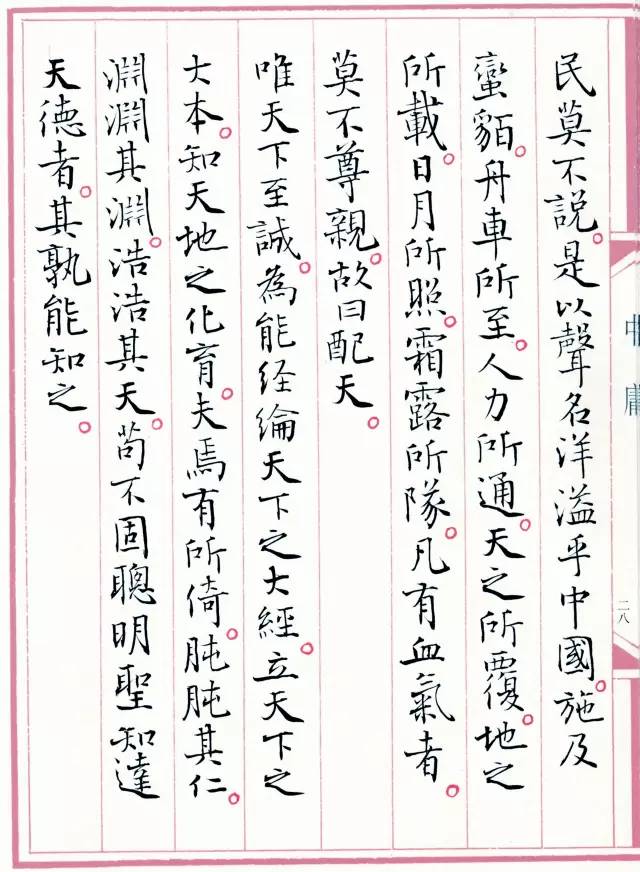 民莫不說。是以聲名洋溢乎中國。施及
蠻貊。舟車所至。人力所通。天之所覆。地之
所載。日月所照。霜露所隊。凡有血氣者。
莫不尊親。故曰配天。
唯天下至誠。為能经綸天下之大經。立天下之
大本。知天地之化育。夫焉有所倚。肫肫其仁。
淵淵其淵。浩浩其天。苟不固聰明聖知達
天德者。其孰能知之。
中庸
二八